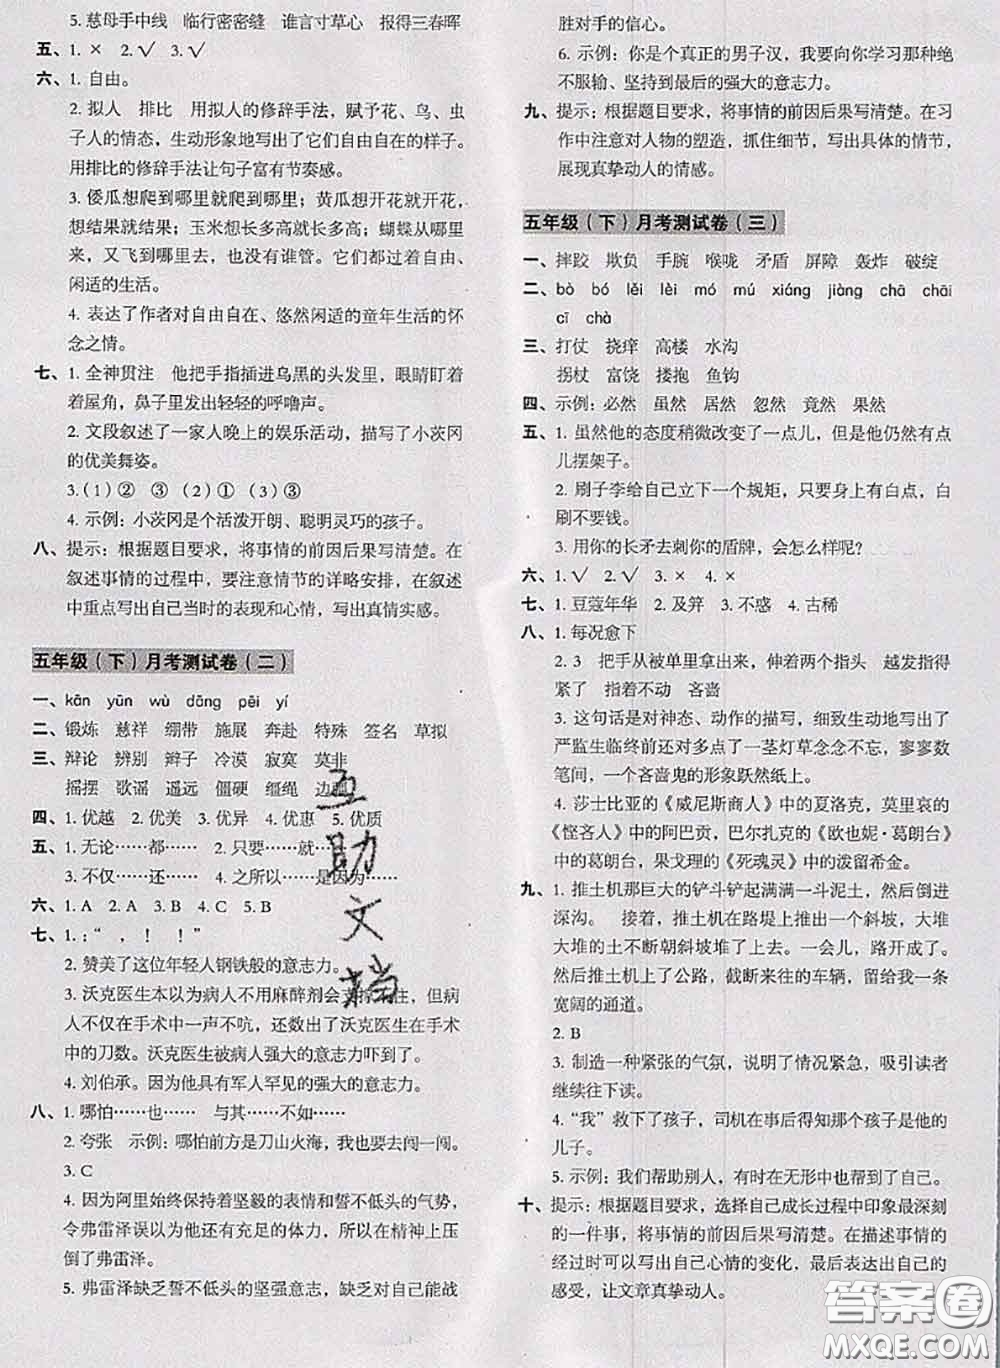 5. 慈母手中线　临行密密缝　谁言寸草心　报得三春晖
五、1. ×　2. √　3. √
六、1. 自由。
2. 拟人　排比　用拟人的修辞手法，赋予花、鸟、虫
子人的情态，生动形象地写出了它们自由自在的样子。
用排比的修辞手法让句子富有节奏感。
3. 倭瓜想爬到哪里就爬到哪里；黄瓜想开花就开花，
想结果就结果；玉米想长多高就长多高；蝴蝶从哪里
来，又飞到哪里去，也没有谁管。它们都过着自由、
闲适的生活。
4. 表达了作者对自由自在、悠然闲适的童年生活的怀
念之情。
七、1. 全神贯注　他把手指插进乌黑的头发里，眼睛盯着
着屋角，鼻子里发出轻轻的呼噜声。
2. 文段叙述了一家人晚上的娱乐活动，描写了小茨冈
的优美舞姿。
3.（1）②　③（2）①（3）③
4. 示例：小茨冈是个活泼开朗、聪明灵巧的孩子。
八、提示：根据题目要求，将事情的前因后果写清楚。在
叙述事情的过程中，要注意情节的详略安排，在叙述
中重点写出自己当时的表现和心情，写出真情实感。
五年级（下）月考测试卷（二）
一、kān　yūn　wù　dāng　pēi　yí
二、锻炼　慈祥　绷带　施展　奔赴　特殊　签名　草拟
三、辩论　辨别　辫子　冷漠　寂寞　莫非
摇摆　歌谣　遥远　僵硬　缰绳　边疆
四、1. 优越　2. 优美　3. 优异　4. 优惠　5. 优质
五、1. 无论……都……　2. 只要……就……
3. 不仅……还……　4. 之所以……是因为……
六、1. A　2. A　3. B　4. C　5. B
七、1. ：“　，　！　！”
2. 赞美了这位年轻人钢铁般的意志力。
3. 沃克医生本以为病人不用麻醉剂会支持不住，但病
人不仅在手术中一声不吭，还数出了沃克医生在手术
中的刀数。沃克医生被病人强大的意志力吓到了。
4. 刘伯承。因为他具有军人罕见的强大的意志力。
八、1. 哪怕……也……　与其……不如……
2. 夸张　示例：哪怕前方是刀山火海，我也要去闯一闯。
3. C
4. 因为阿里始终保持着坚毅的表情和誓不低头的气势，
令弗雷泽误以为他还有充足的体力，所以在精神上压
倒了弗雷泽。
5. 弗雷泽缺乏誓不低头的坚强意志，缺乏对自己能战
胜对手的信心。
6. 示例：你是个真正的男子汉，我要向你学习那种绝
不服输、坚持到最后的强大的意志力。
九、提示：根据题目要求，将事情的前因后果写清楚。在习
作中注意对人物的塑造，抓住细节，写出具体的情节，
展现真挚动人的情感。
五年级（下）月考测试卷（三）
一、摔跤　欺负　手腕　喉咙　矛盾　屏障　轰炸　破绽
二、bò　bó　lěi　lèi　mó　mú　xiáng　jiàng　chā　chāi
cī　chà
三、打仗　挠痒　高楼　水沟
拐杖　富饶　搂抱　鱼钩
四、示例：必然　虽然　居然　忽然　竟然　果然
五、1. 虽然他的态度稍微改变了一点儿，但他仍然有点
儿摆架子。
2. 刷子李给自己立下一个规矩，只要身上有白点，白
刷不要钱。
3. 用你的长矛去刺你的盾牌，会怎么样呢？
六、1. √　2. √　3. ×　4. ×
七、1. 豆蔻年华　2. 及笄　3. 不惑　4. 古稀
八、1. 每况愈下
2. 3　把手从被单里拿出来，伸着两个指头　越发指得
紧了　指着不动　吝啬
3. 这句话是对神态、动作的描写，细致生动地写出了
严监生临终前还对多点了一茎灯草念念不忘，寥寥数
笔间，一个吝啬鬼的形象跃然纸上。
4. 莎士比亚的《威尼斯商人》中的夏洛克，莫里哀的
《悭吝人》中的阿巴贡，巴尔扎克的《欧也妮·葛朗台》
中的葛朗台，果戈理的《死魂灵》中的泼留希金。
九、1. 推土机那巨大的铲斗铲起满满一斗泥土，然后倒进
深沟。　接着，推土机在路堤上布成一个斜坡，大堆
大堆的土不断朝斜坡堆下去。一会儿，路开成了。
然后推土机上了公路，截断来往的车辆，留给我一条
宽阔的通道。
2. B
3. 制造一种紧张的气氛，说明了情况紧急，吸引读者
继续往下读。
4.“我”救下了孩子，司机在事后得知那个孩子是他的
儿子。
5. 示例：我们帮助别人，有时在无形中也帮了自己。
十、提示：根据题目要求，选择自己成长过程中印象最深刻
的一件事，将事情的前因后果写清楚。在描述事情的
经过时可以写出自己心情的变化，最后表达出自己的
感受，让文章真挚动人。
互
助
文
档
答案圈
MXQE.COM